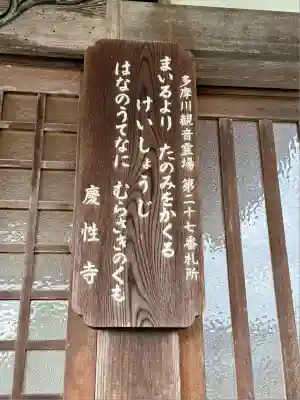 多摩川観音霊場 第二十七番札所
まいるより たのみをかくる
けいしょうじ
はなのうてなに むらさきのくも
慶性寺